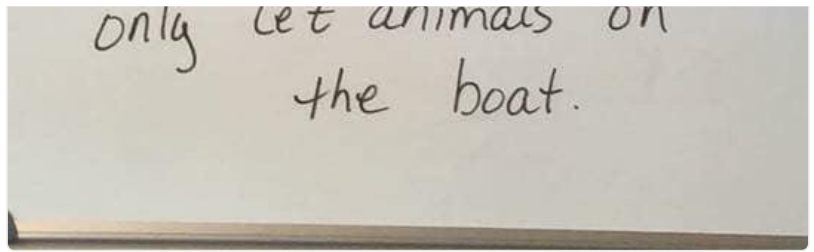 only let animals on
the boat.